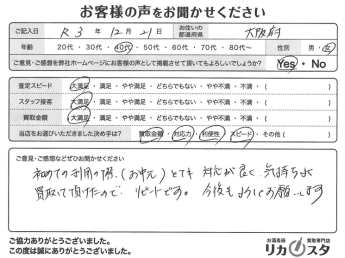 お客様の声をお聞かせください
ご記入日 R 3 年 12 月 21 日 お住いの都道府県 大阪府
年齢 20代・30代・40代・50代・60代・70代・80代〜 性別 男・女
ご意見・ご感想を弊社ホームページにお客様の声として掲載させて頂いてもよろしいでしょうか? Yes・No
査定スピード 大満足・満足・やや満足・どちらでもない・やや不満・不満・( )
スタッフ接客 大満足・満足・やや満足・どちらでもない・やや不満・不満・( )
買取金額 大満足・満足・やや満足・どちらでもない・やや不満・不満・( )
当店をお選びいただきました決め手は? 買取金額・対応力・利便性・スピード・その他( )
ご意見・ご感想などぜひお聞かせください
初めての利用の際、(お中元) とても 対応が良く、気持ちよく
買取って頂けたので リピートです。今後もよろしくお願いします
ご協力ありがとうございました。
この度は誠にありがとうございました。
お酒高価 買取専門店
リカスタ